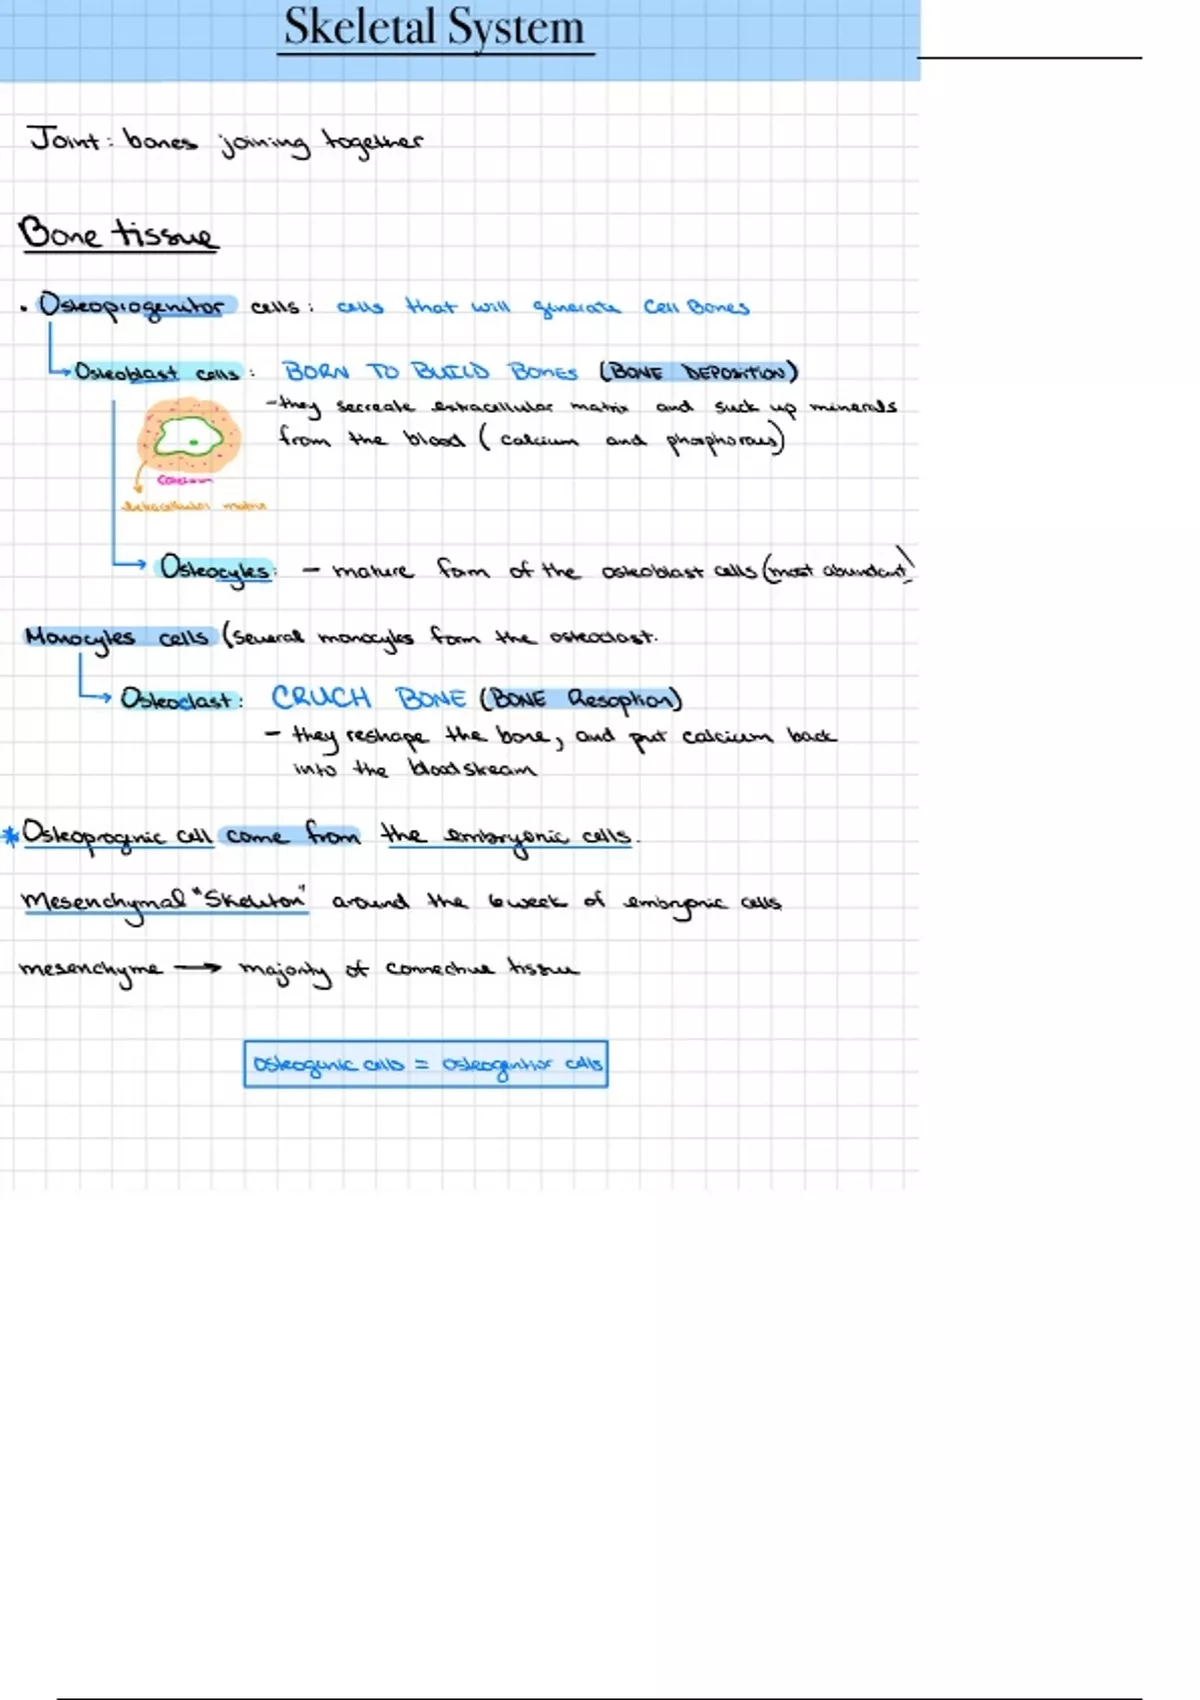 Skeletal System
Joint: bones joining together
Bone tissue
• Osteoprogenitor cells: cells that will generate Cell Bones
Osteoblast cells: BORN TO BUILD BONES (BONE DEPOSITION)
- they secreate extracellular matrix and suck up minerals
from the blood (calcium and phosphorous)
Calcium
Extracellular matrix
Osteocytes: - mature form of the osteoblast cells (most abundant)
Monocytes cells (Several monocytes form the osteoclast.
Osteoclast: CRUCH BONE (BONE Resoption)
- they reshape the bone, and put calcium back
into the bloodstream
* Osteoprognic cell come from the embryonic cells.
Mesenchymal "Skeleton" around the 6 week of embryonic cells
mesenchyme → majority of connective tissue
Osteogenic cells = osteogenitor cells